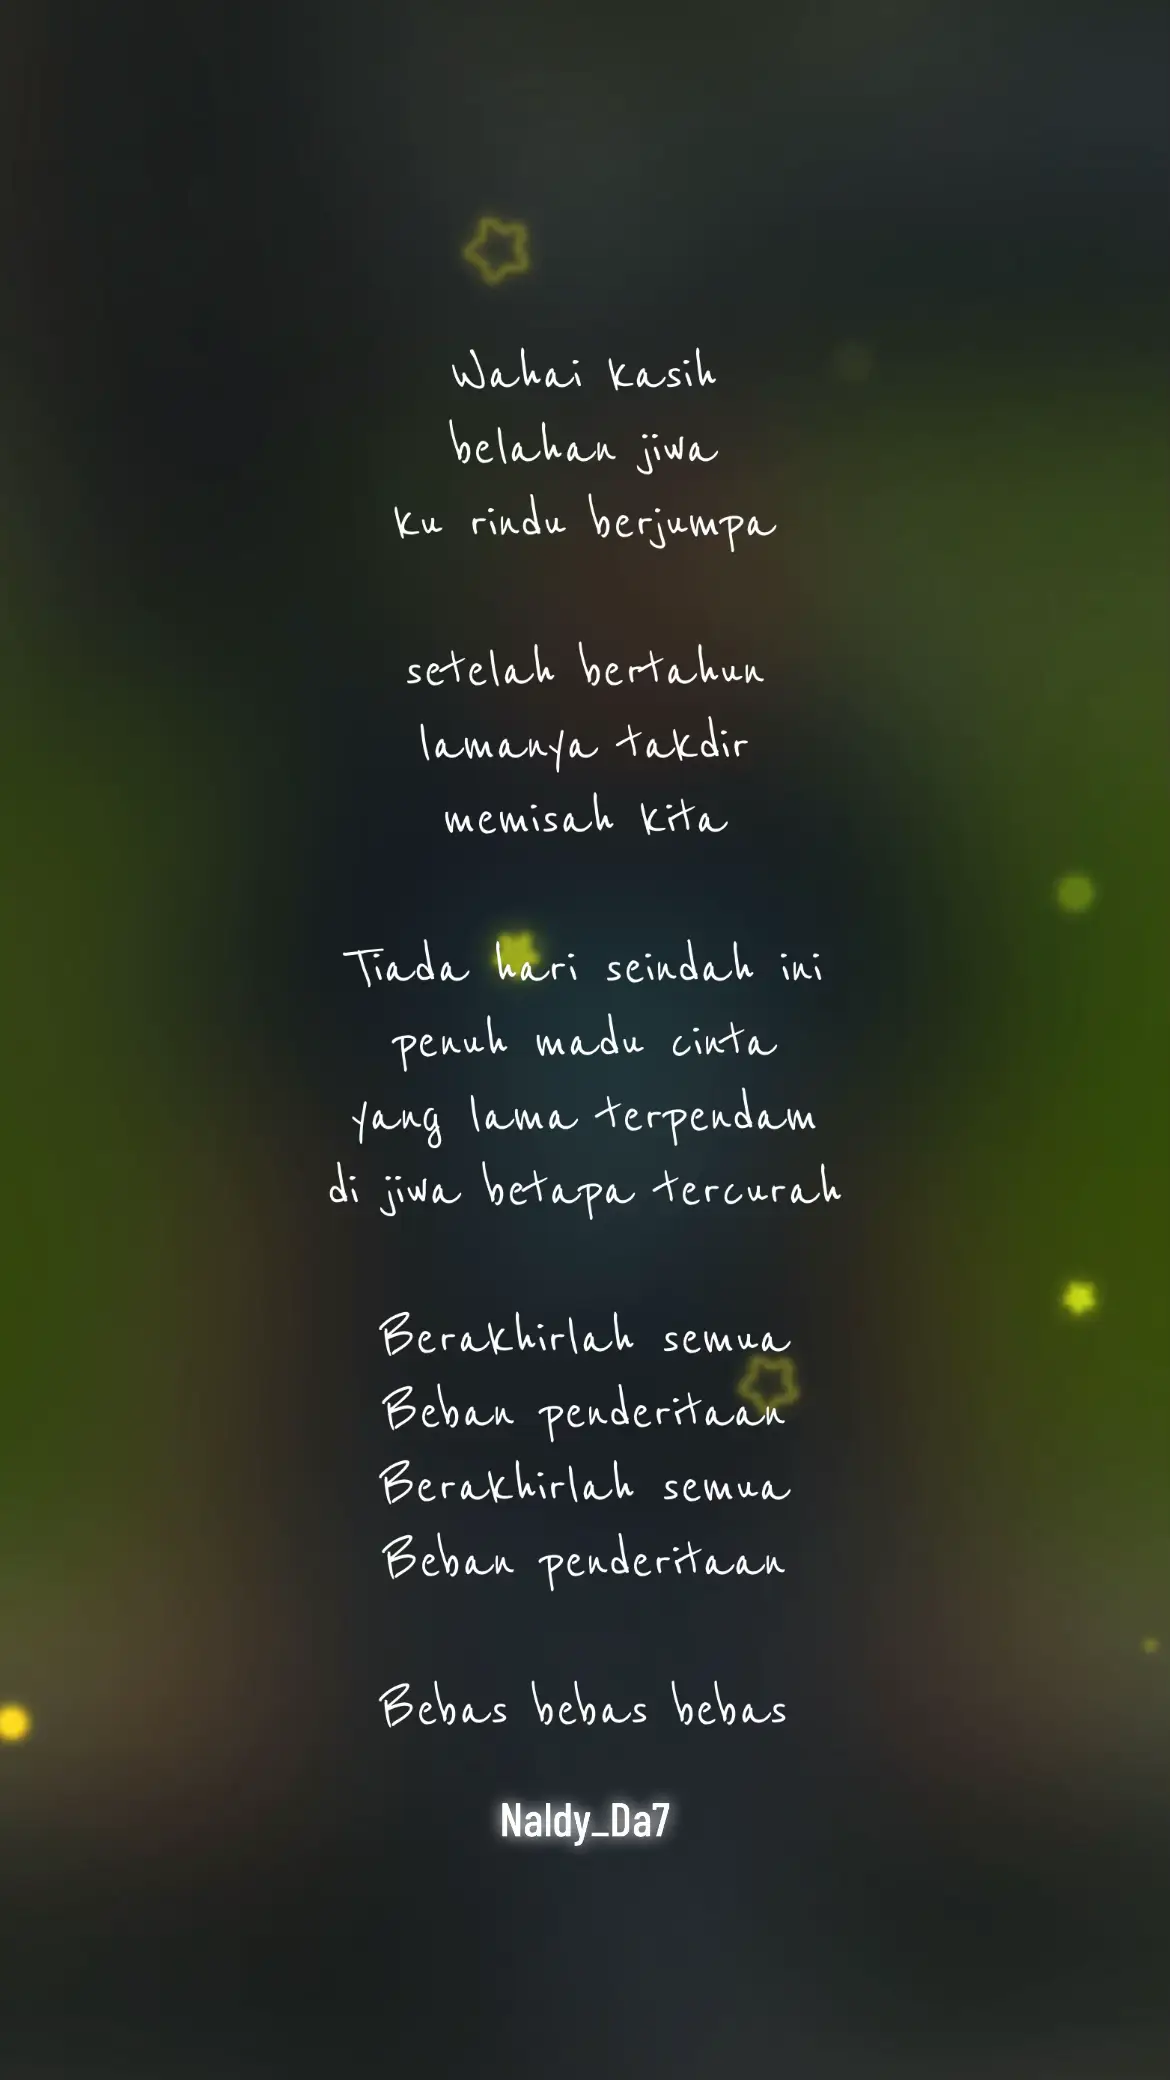 Wahai kasih
belahan jiwa
ku rindu berjumpa
setelah bertahun
lamanya takdir
memisah kita
Tiada hari seindah ini
penuh madu cinta
yang lama terpendam
di jiwa betapa tercurah
Berakhirlah semua
Beban penderitaan
Berakhirlah semua
Beban penderitaan
Bebas bebas bebas
Naldy_Da7